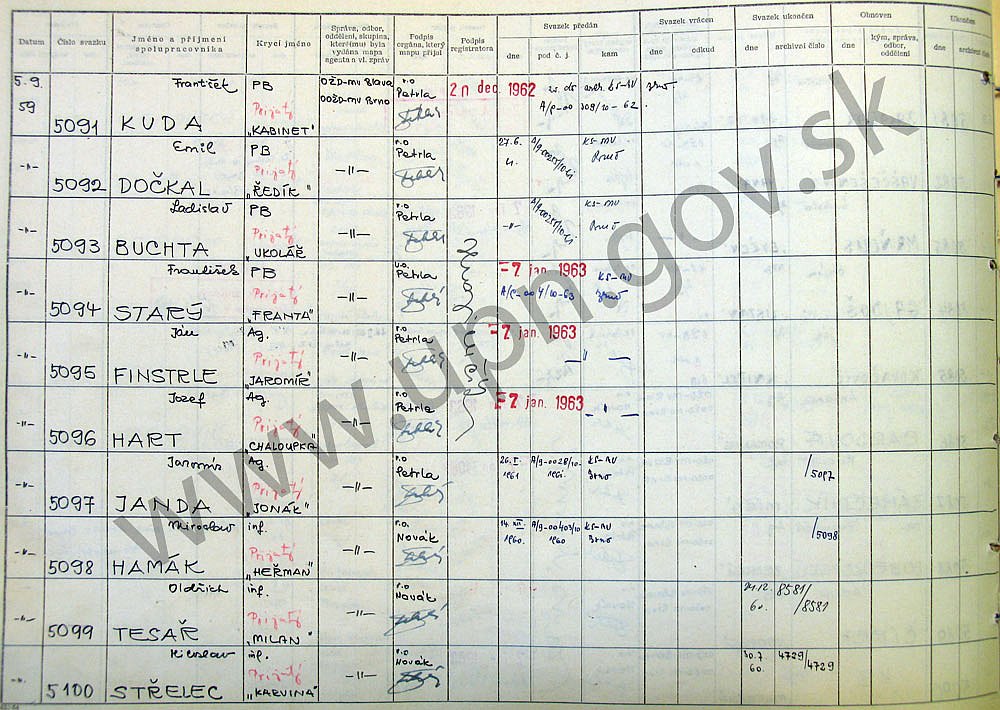 Datum
Číslo svazku
Jméno a příjmení
spolupracovníka
Krycí jméno
Správa, odbor,
oddělení, skupina,
kterému byla
vydána mapa
agenta n vl. zpráv
Podpis
orgána, který
mapu přijal
Podpis
registratora
Svazek předán
dne
pod č. j.
kam
Svazek vrácen
dne
odkud
Svazek ukončen
dne
archivní číslo
Obnoven
dne
kým, správa,
odbor,
oddělení
Ukončen
dne
archivní číslo
5.9.
59
5091
František
KUDA
PB
Prijatý
"KABINET"
OŽD-MV Blava
OOŽD-MV Brno
r.o
Petrla
20 dec 1962
A/9-00 309/10-62
-"-
5092
Emil
DOČKAL
PB
Prijatý
"ŘEDÍK"
-"-
r.o
Petrla
27.6.
KS-MV
Brno
-"-
5093
Ladislav
BUCHTA
PB
Prijatý
"UKOLÁŘ
-"-
r.o
Petrla
-"-
KS-MV
Brno
-"-
5094
František
STARÝ
PB
Prijatý
"FRANTA"
-"-
r.o
Petrla
-7 jan 1963
A/9-004/10-63
KS-MV
Brno
-"-
5095
Ján
FINSTRLE
Ag.
Prijatý
"JAROMÍR"
-"-
r.o
Petrla
-7 jan. 1963
-"-
-"-
5096
Jozef
HART
Ag.
Prijatý
"CHALOUPKA"
-"-
r.o
Petrla
-7 jan. 1963
-"-
-"-
5097
Jaromír
JANDA
Ag.
Prijatý
"JONÁK"
-"-
r.o
Petrla
26.I.
1961
A/9-0028/10-
1961
KS-MV
Brno
/5097
-"-
5098
Miroslav
HAMÁK
inf.
Prijatý
"HEŘMAN"
-"-
r.o.
Novák
14. XII.
1960.
A/9-00403/10
1960
KS-MV
Brno
/5098
-"-
5099
Oldřich
TESAŘ
inf.
Prijatý
"MILAN"
-"-
r.o
Novák
21.12.
60.
8581
/8581
-"-
5100
Miroslav
STŘELEC
inf.
Prijatý
"KARVINÁ"
-"-
r.o
Novák
30.7
60.
4729/
4729
www.upn.gov.sk